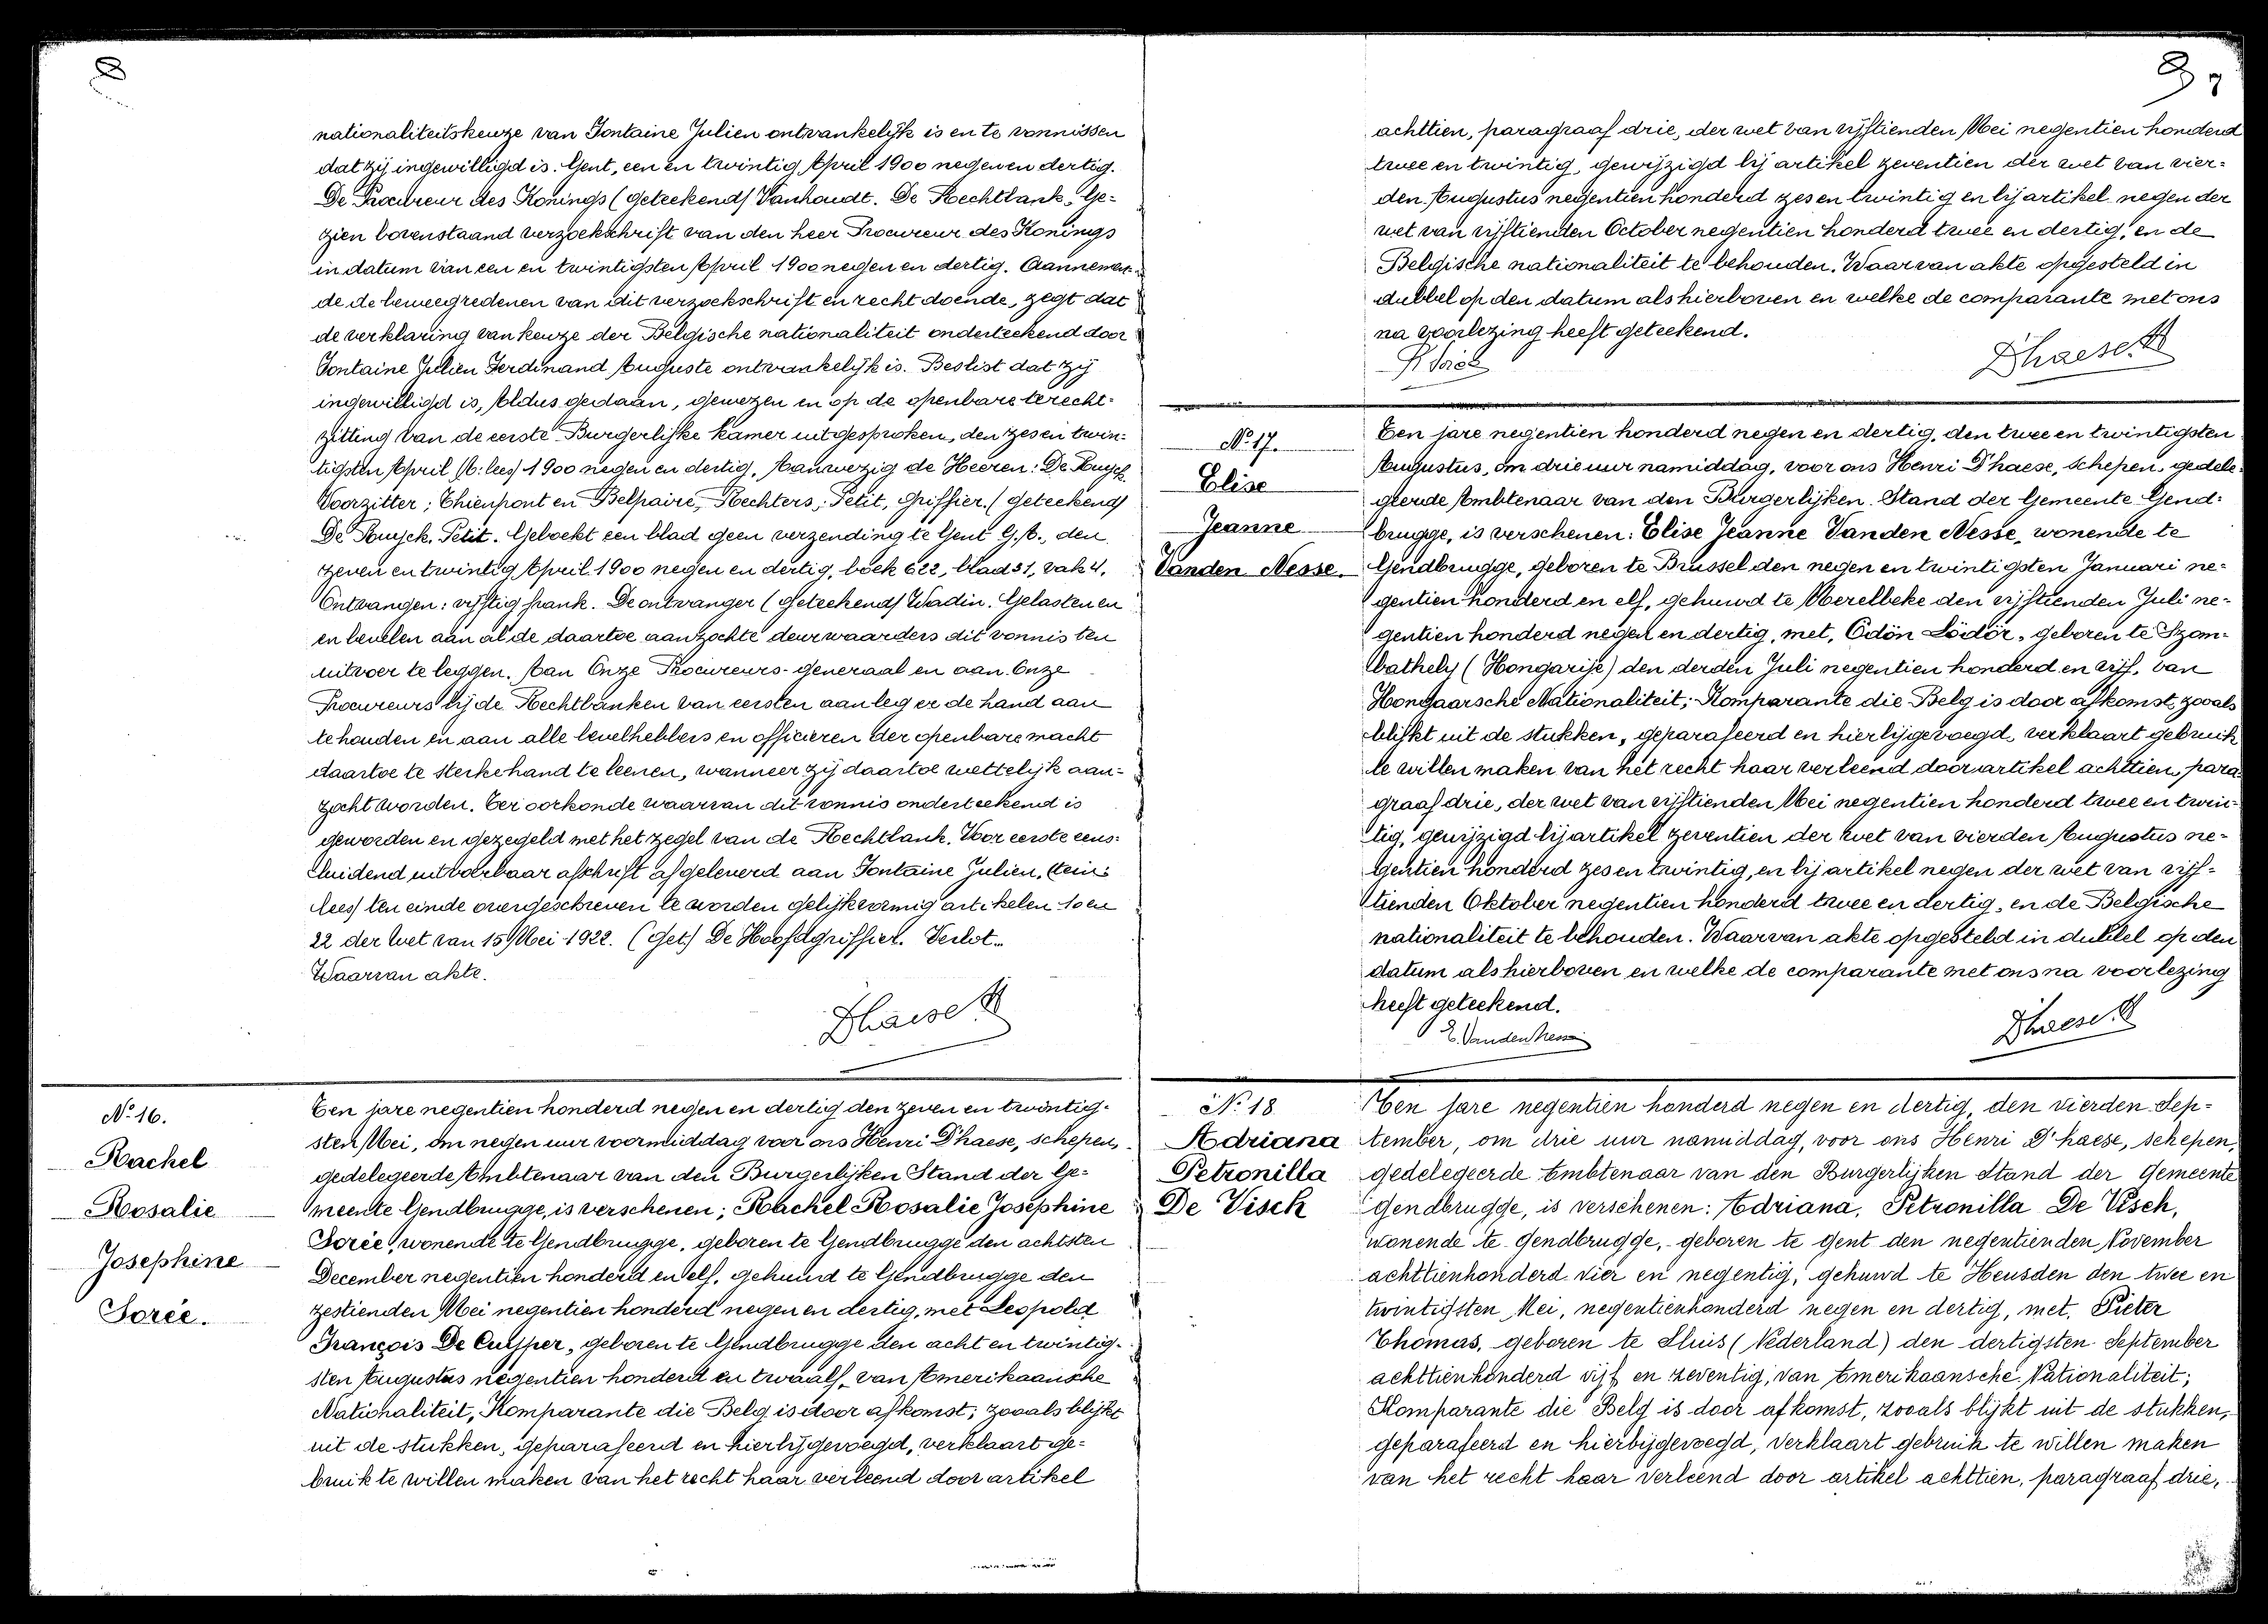 8
nationaliteitskeuze van Fontaine Julien ontvankelijk is en te vonnissen
dat zij ingewilligd is. Gent, een en twintig April 1900 negen en dertig.
De Procureur des Konings (geteekend) Vanhoudt. De Rechtbank, Ge=
zien bovenstaand verzoekschrift van den heer Procureur des Konings
in datum van een en twintigsten April 1900 negen en dertig. Aannemen=
de de beweegredenen van dit verzoekschrift en recht doende, zegt dat
de verklaring van keuze der Belgische nationaliteit onderteekend door
Fontaine Julien Ferdinand Auguste ontvankelijk is. Beslist dat zij
ingewilligd is, Aldus gedaan, gewezen en op de openbare terecht=
zitting van de eerste Burgerlijke kamer uitgesproken, den zes en twin=
tigsten April (A: lees) 1900 negen en dertig, Aanwezig de Heeren: De Ruyck
Voorzitter; Thienpont en Belpaire, Rechters; Petit, Griffier. (geteekend)
De Ruyck. Petit. Geboekt een blad geen verzending te Gent G.A., den
zeven en twintig April 1900 negen en dertig, boek 622, blad 31, vak 4.
Ontvangen: vijftig frank. De ontvanger (geteekend) Wadin. Gelasten en
en bevelen aan al de daartoe aanzochte deurwaarders dit vonnis ten
uitvoer te leggen. Aan Onze Procureurs-generaal en aan Onze
Procureurs bij de Rechtbanken van eersten aanleg er de hand aan
te houden en aan alle bevelhebbers en officieren der openbare macht
daartoe te sterke hand te leenen, wanneer zij daartoe wettelijk aan=
zocht worden. Ter oorkonde waarvan dit vonnis onderteekend is
geworden en gezegeld met het zegel van de Rechtbank. Voor eerste eens=
luidend uitvoerbaar afschrift afgeleverd aan Fontaine Julien, (ein:
lees) ten einde overgeschreven te worden gelijkvormig artikelen 10 en
22 der Wet van 15 Mei 1922. (Get.) De Hoofdgriffier. Verlot.
Waarvan akte.
Dhaese H
N° 16.
Rachel
Rosalie
Josephine
Sorée.
Ten jare negentien honderd negen en dertig den zeven en twintig=
sten Mei, om negen uur voormiddag voor ons Henri D'haese, schepen,
gedelegeerde Ambtenaar van den Burgerlijken Stand der Ge=
meente Gendbrugge, is verschenen; Rachel Rosalie Josephine
Sorée, wonende te Gendbrugge, geboren te Gendbrugge den achtsten
December negentien honderd en elf, gehuwd te Gendbrugge den
zestienden Mei negentien honderd negen en dertig, met Leopold
François De Cuyper, geboren te Gendbrugge den acht en twintig=
sten Augustus negentien honderd en twaalf, van Amerikaansche
Nationaliteit, Komparante die Belg is door afkomst; zooals blijkt
uit de stukken, geparafeerd en hierbijgevoegd, verklaart ge=
bruik te willen maken van het recht haar verleend door artikel
9
achttien, paragraaf drie, der wet van vijftienden Mei negentien honderd
twee en twintig, gewijzigd bij artikel zeventien der wet van vier=
den Augustus negentien honderd zes en twintig en bij artikel negen der
wet van vijftienden October negentien honderd twee en dertig, en de
Belgische nationaliteit te behouden. Waarvan akte opgesteld in
dubbel op den datum als hierboven en welke de comparante met ons
na voorlezing heeft geteekend.
R Sorée
Dhaese H
N° 17.
Elise
Jeanne
Vanden Nesse.
Ten jare negentien honderd negen en dertig, den twee en twintigsten
Augustus, om drie uur namiddag, voor ons Henri D'haese, schepen, gedele=
geerde Ambtenaar van den Burgerlijken Stand der Gemeente Gend=
brugge, is verschenen: Elise Jeanne Vanden Nesse, wonende te
Gendbrugge, geboren te Brussel den negen en twintigsten Januari ne=
gentien honderd en elf, gehuwd te Merelbeke den vijftienden Juli ne=
gentien honderd negen en dertig, met, Ödön Södör, geboren te Szom=
bathely (Hongarije) den derden Juli negentien honderd en vijf, van
Hongaarsche Nationaliteit; Komparante die Belg is door afkomst, zooals
blijkt uit de stukken, geparafeerd en hierbijgevoegd, verklaart gebruik
te willen maken van het recht haar verleend door artikel achttien, para=
graaf drie, der wet van vijftienden Mei negentien honderd twee en twin=
tig, gewijzigd bij artikel zeventien der wet van vierden Augustus ne=
gentien honderd zes en twintig, en bij artikel negen der wet van vijf=
tienden Oktober negentien honderd twee en dertig, en de Belgische
nationaliteit te behouden. Waarvan akte opgesteld in dubbel op den
datum als hierboven en welke de comparante met ons na voorlezing
heeft geteekend.
E. Vanden Nesse
Dhaese H
N° 18
Adriana
Petronilla
De Visch
Ten jare negentien honderd negen en dertig, den vierden Sep=
tember, om drie uur namiddag, voor ons Henri D'haese, schepen,
gedelegeerde Ambtenaar van den Burgerlijken Stand der Gemeente
Gendbrugge, is verschenen: Adriana, Petronilla De Visch,
wonende te Gendbrugge, geboren te Gent den negentienden November
achttienhonderd vier en negentig, gehuwd te Heusden den twee en
twintigsten Mei, negentienhonderd negen en dertig, met, Pieter
Thomas, geboren te Sluis (Nederland) den dertigsten September
achttienhonderd vijf en zeventig, van Amerikaansche Nationaliteit;
Komparante die Belg is door afkomst, zooals blijkt uit de stukken,
geparafeerd en hierbijgevoegd, verklaart gebruik te willen maken
van het recht haar verleend door artikel achttien, paragraaf drie,